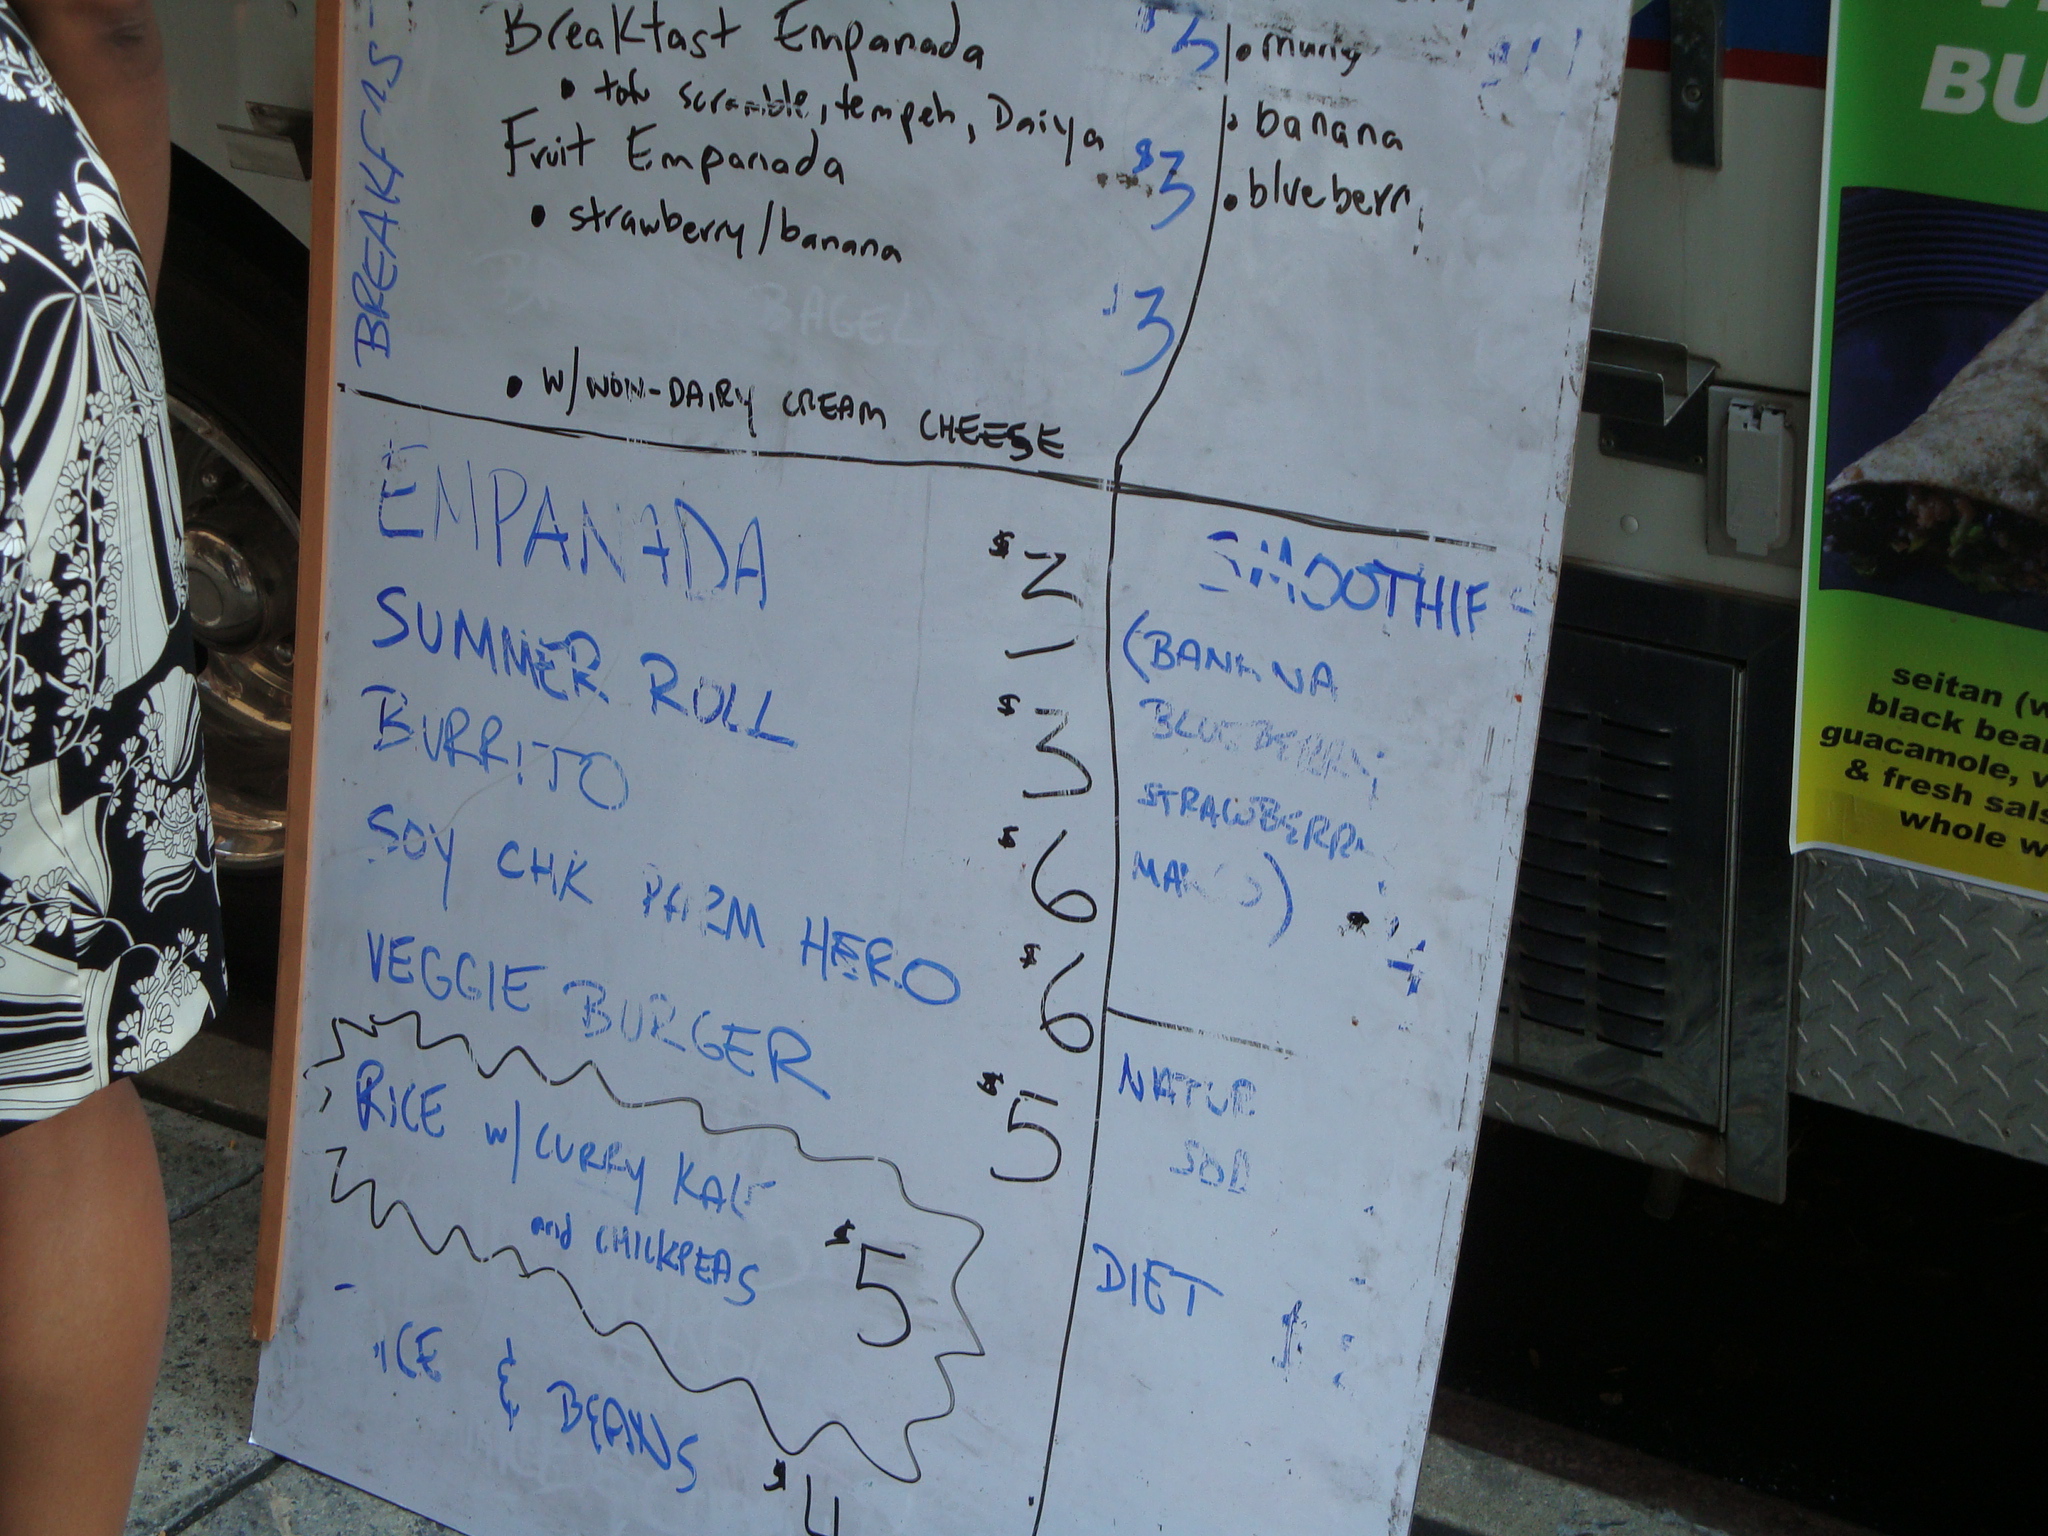 BREAKFAS
Breakfast Empanada $3
• tofu scramble, tempeh, Daiya
Fruit Empanada $3
• strawberry/banana
BAGEL $3
• W/NON-DAIRY CREAM CHEESE
• banana
• blueberr
EMPANADA $3
SUMMER ROLL $3
BURRITO $6
SOY CHK PARM HERO $6
VEGGIE BURGER $5
RICE w/CURRY KALE
and CHICKPEAS $5
ICE & BEANS $4
SMOOTHIE
(BANANA
BLUEBERRY
STRAWBERRY
MANGO)
NATUR
SOD
DIET
BU
seitan (w
black bea
guacamole, v
& fresh sals
whole w